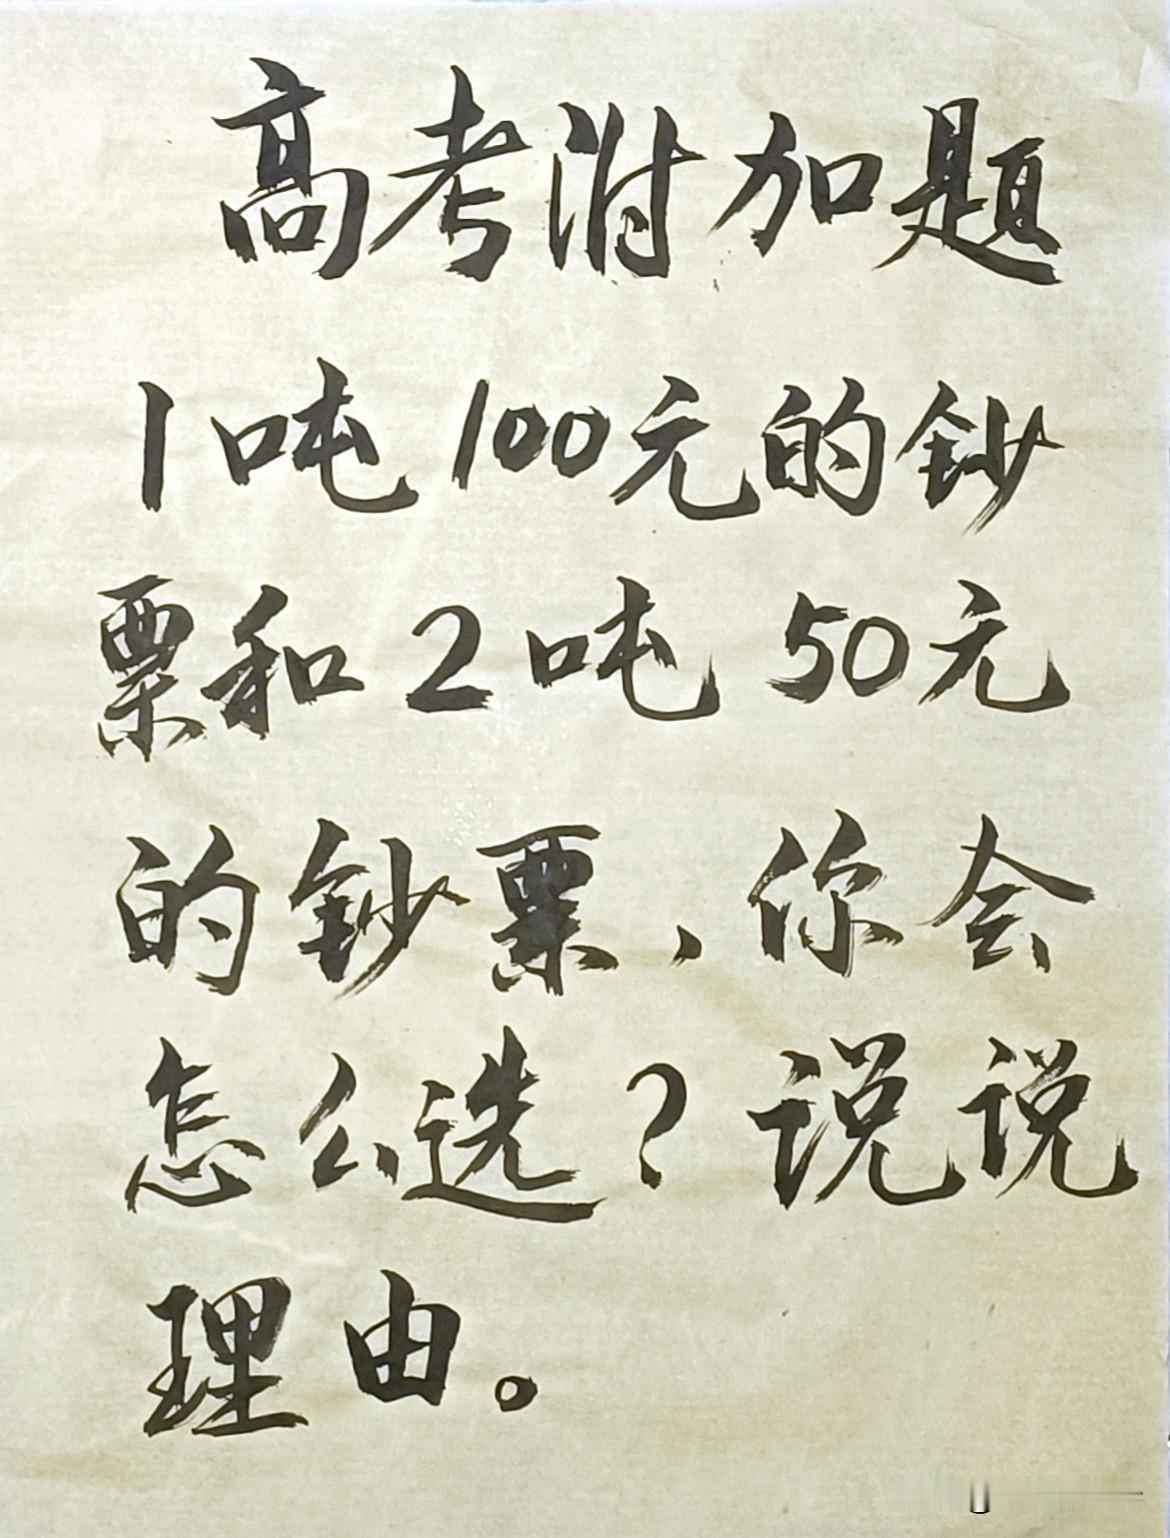 高考附加题
1吨100元的钞
票和2吨50元
的钞票,你会
怎么选?说说
理由。